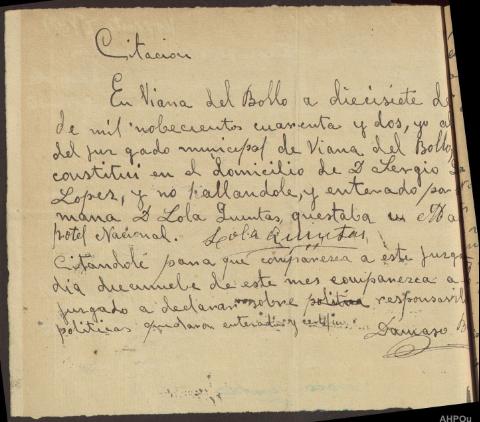 Citacion
En Viana del Bollo a diecisiete de
de mil nobecientos cuarenta y dos, yo al
del juzgado municipal de Viana del Bollo,
constitui en el domicilio de D Sergio
Lopez, y no hallandole, y enterado por
mana D Lola Quintas, questaba en
hotel Nacional. Lola Quintas,
Citandole para que compareza a este juzg
dia diecinuebe de este mes compareza a
juzgado a declarar sobre responsavil
politicas enterado y
Damaso B
AHPOu